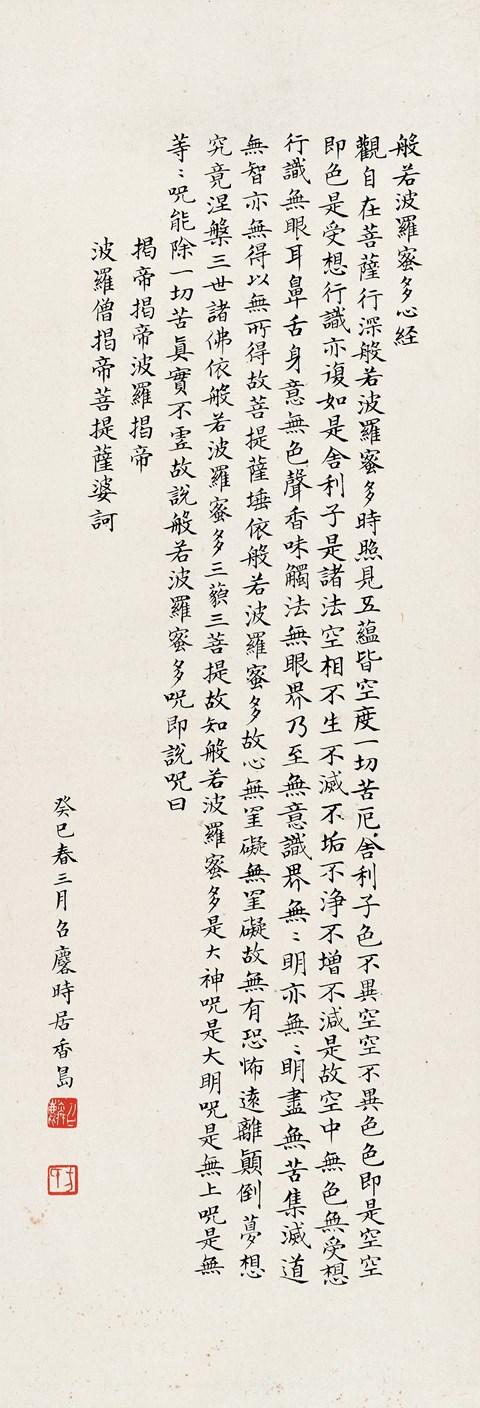 般若波羅蜜多心経
觀自在菩薩行深般若波羅蜜多時照見五蘊皆空度一切苦厄舍利子色不異空空不異色色即是空空
即色是受想行識亦復如是舍利子是諸法空相不生不滅不垢不浄不增不減是故空中無色無受想
行識無眼耳鼻舌身意無色聲香味觸法無眼界乃至無意識界無〻明亦無〻明盡無苦集滅道
無智亦無得以無所得故菩提薩埵依般若波羅蜜多故心無罣礙無罣礙故無有恐怖遠離顛倒夢想
究竟涅槃三世諸佛依般若波羅蜜多三藐三菩提故知般若波羅蜜多是大神咒是大明咒是無上咒是無
等〻咒能除一切苦眞實不虛故說般若波羅蜜多咒即說咒曰
揭帝揭帝波羅揭帝
波羅僧揭帝菩提薩婆訶
癸巳春三月召麐時居香島